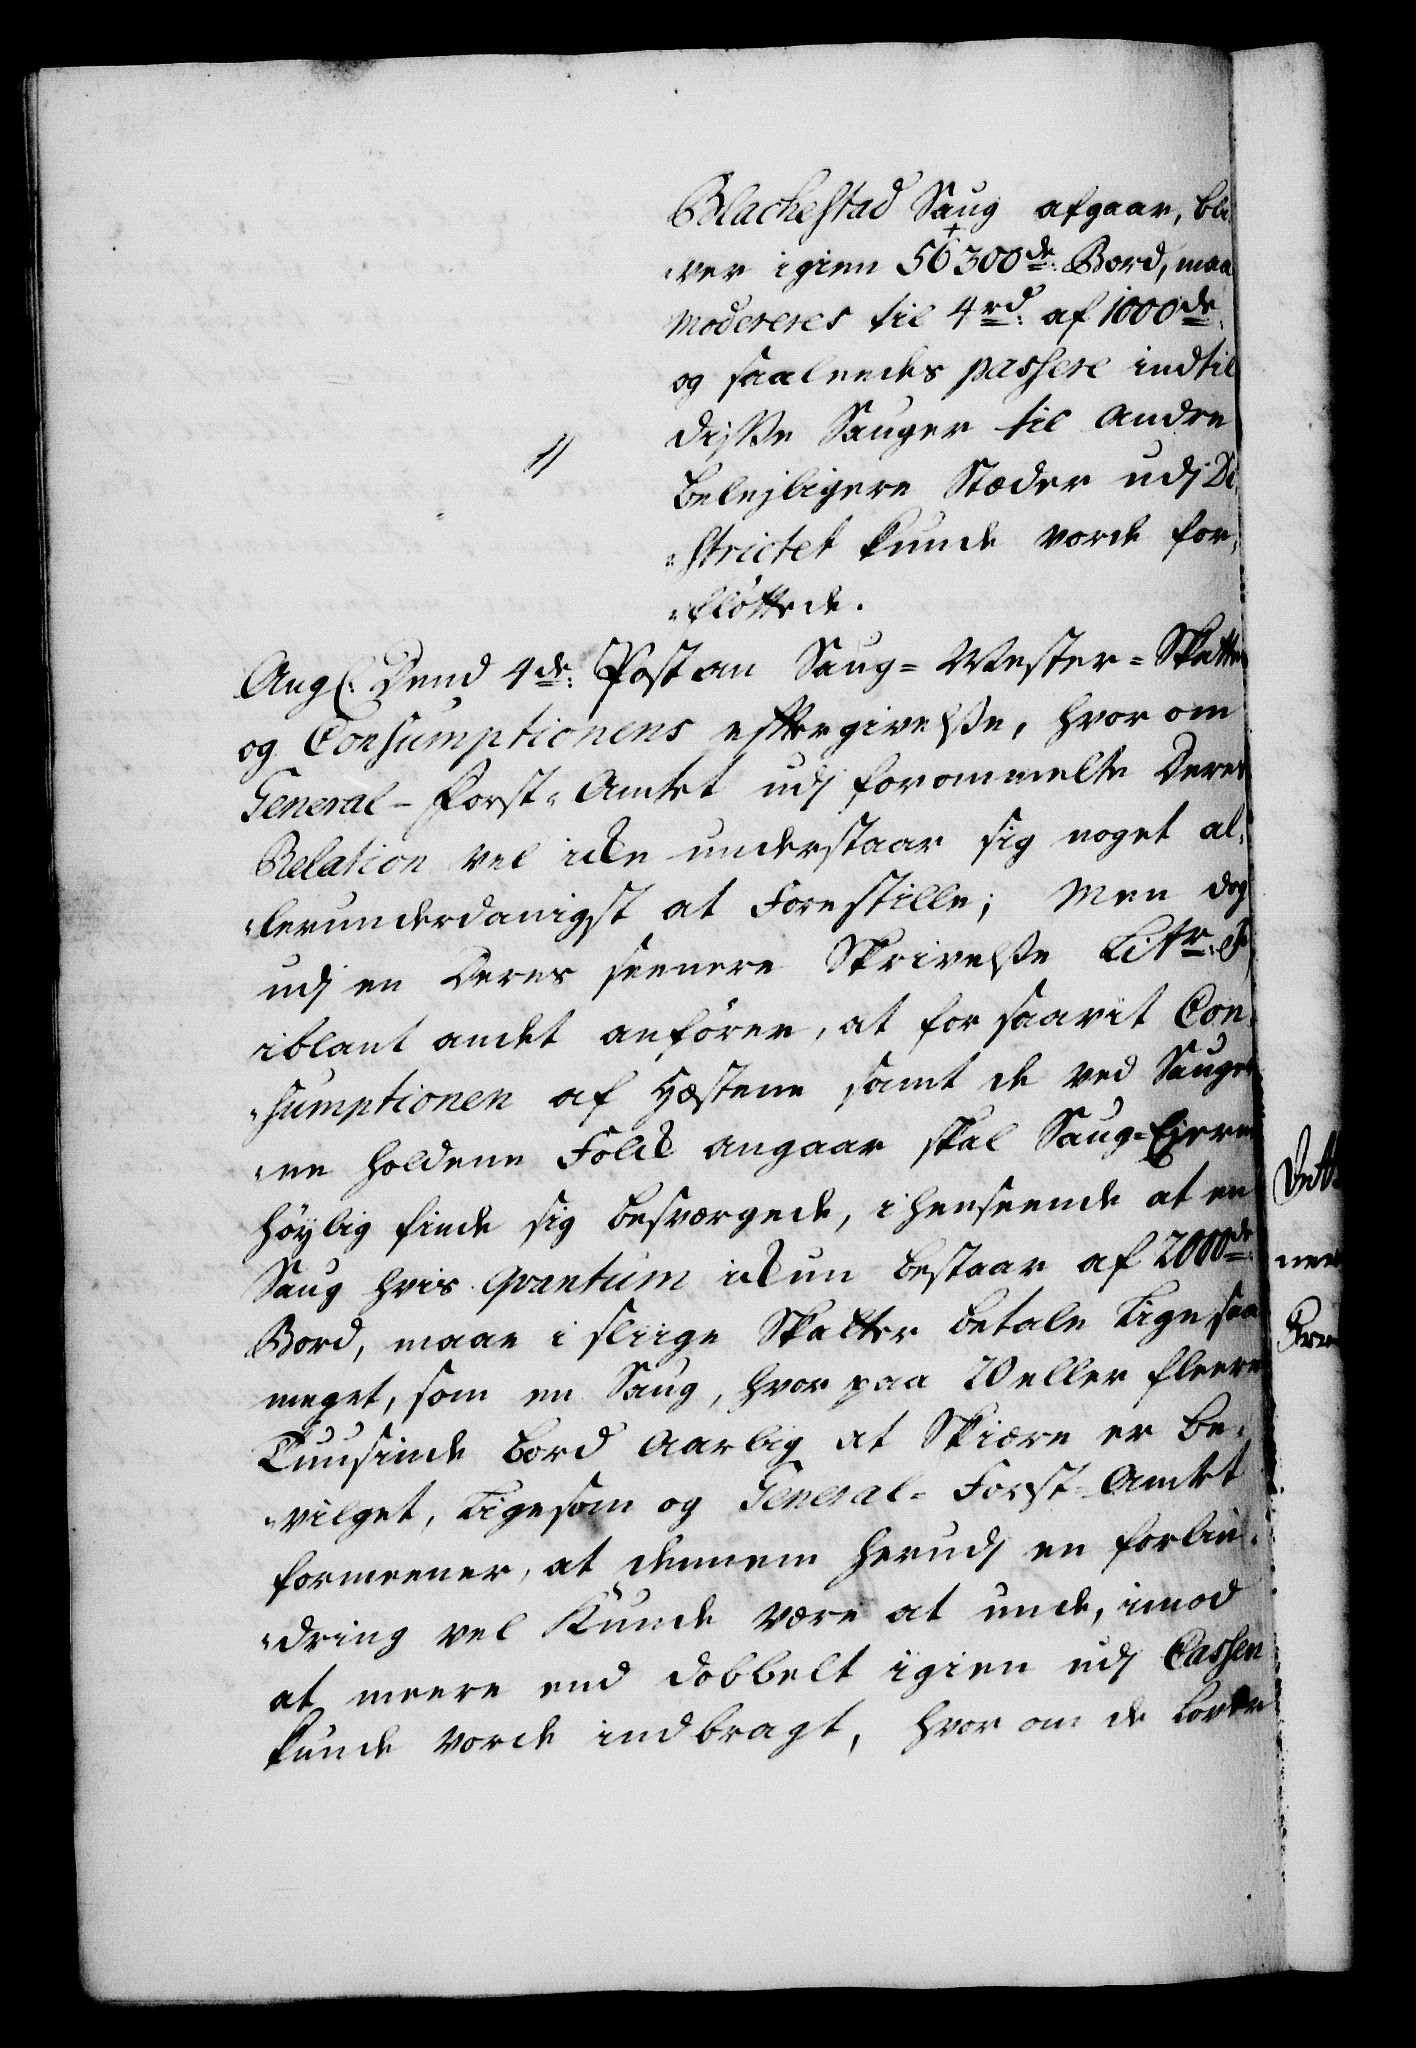 Blachestad Saug afgaar, bli„
„ver igien 56300de: Bord, maa
modereres til 4 rd: af 1000de:
og saaleedes passere indtil
disse Sauger til andre
beleyligere Stæder udj Di„
„strictet kunde vorde for„
„fløttede.
Ang: Dend 4de: Post om Saug- Mester- Skatten
og Consumptionens eftergivelsse, hvorom
General- Forst- Amtet udj forommelte Deres
Relation vel icke understaar sig noget al„
„lerunderdanigst at Forestille; Men dog
udj en Deres seenere Skrivelsse Litr: F
iblant andet anfører, at for saavit Con„
„sumptionen af Hæstene samt de ved Sauger„
„ne holdene Folck angaar skal Saug-Eierne
høylig finde sig besværgede, i henseende at en
Saug hvis Qvantum ickun bestaar af 2000de:
Bord, maae i sliige Skatter betale Ligesaa
meget, som en Saug, hvor paa 20 eller fleere
Tuusinde bord Aarlig at Skiære er be„
„vilget, Ligesom og General- Forst- Amtet
formeener, at dennem herudj en forlin„
„dring vel Kunde være at unde, imod
at meere end dobbelt igien udj Cassen
kunde vorde indbragt, hvor om de